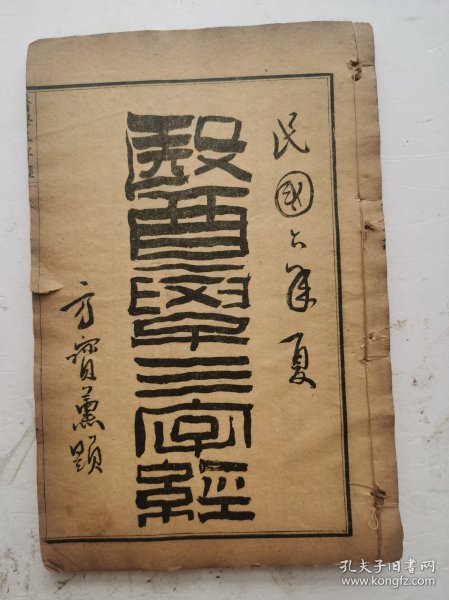 民國六年夏
醫學三字經
方寶薰題
孔夫子旧书网
www.kongfz.com